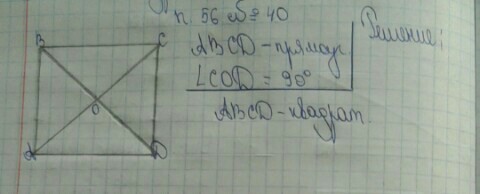 п. 56 №40
ABCD - прямоуг
∠COD = 90°
ABCD - квадрат.
Решение:
B
C
O
A
D